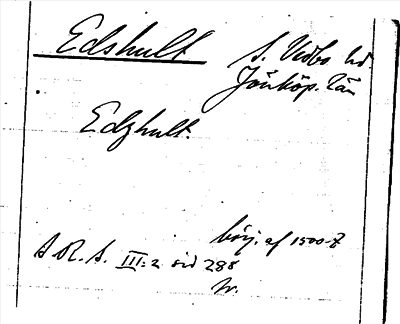 Edshult S. Vedbo hd.
Jönköp. län
Edzhult.
börj. af 1500-t
S.R.A. III:2 sid 288
tr.